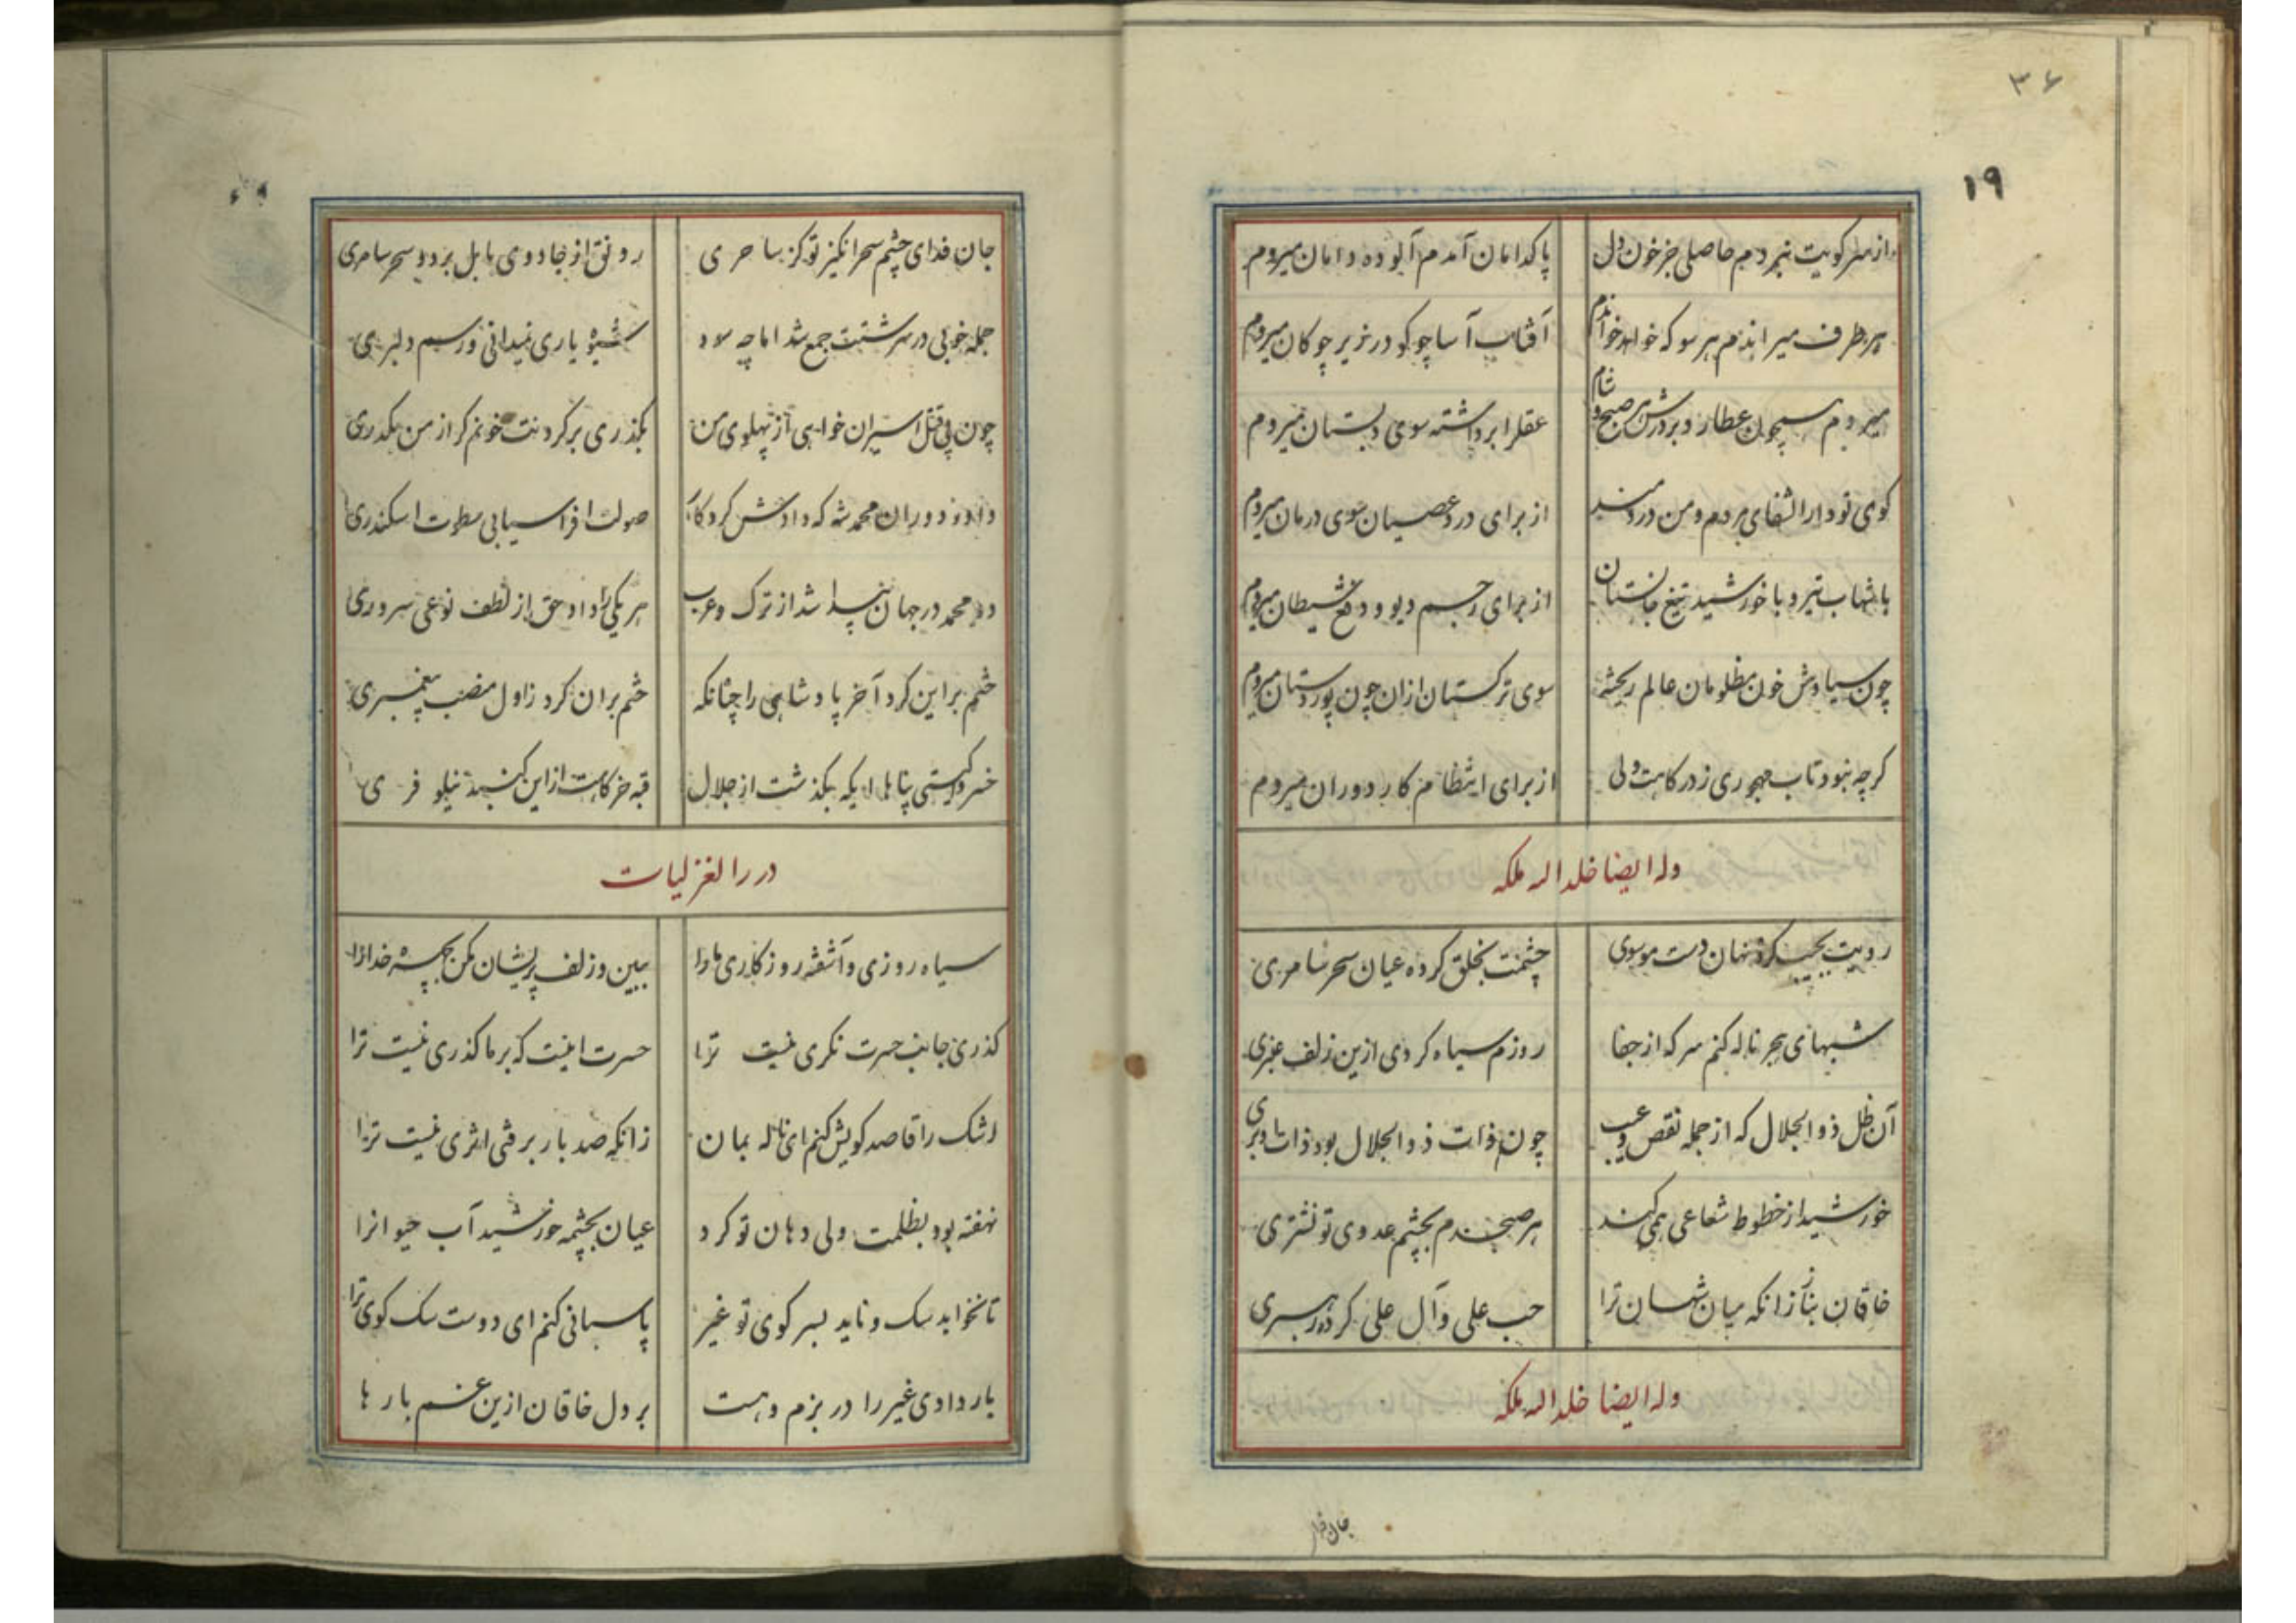 ۳۶
۱۹
از سر کویت نبردم حاصلی جز خون دل پاکدامان آمدم آلوده دامان میروم
هر طرف میراندم هر سو که خواهد خواندم آفتاب آسا چو کو در زیر چوکان میروم
میروم همچون عطارد بر درش هر صبح و شام عقل را برداشته سوی دبستان میروم
کوی تو دارالشفای مردم و من دردمند از برای درد عصیان سوی درمان میروم
با شهاب تیر و با خورشید تیغ جانستان از برای رجم دیو و دفع شیطان میروم
چون سیاوش خون مظلومان عالم ریخته سوی ترکستان ازان چون پور دستان میروم
کرچه نبود تاب مهجوری ز درکاهت ولی از برای انتظام کار دوران میروم
وله ایضا خلد الله ملکه
رویت بجیب کرده نهان دست موسوی چشمت بخلق کرده عیان سحر سامری
شبهای هجر ناله کنم سر که از جفا روزم سیاه کردی ازین زلف عنبری
آن ظل ذوالجلال که از جمله نقص و عیب چون ذات ذوالجلال بود ذاتا بری
خورشید از خطوط شعاعی همی کند هر صبحدم بچشم عدوی تو نشتری
خاقان بناز زانکه میان شهان ترا حب علی و آل علی کرده رهبری
وله ایضا خلد الله ملکه
جان فدای
جان فدای چشم سحرانکیز تو کز ساحری رونق از جادوی بابل برد و سحر سامری
جمله خوبی در سرشتت جمع شد اما چه سود شیوه یاری نمیدانی و رسم دلبری
چون پی قتل اسیران خواهی از پهلوی من بکذری بر کردنت خونم کر از من بکذری
داور دوران محمد شه که دادش کردکار صولت افراسیابی سطوت اسکندری
دو محمد در جهان پیدا شد از ترک و عرب هر یکی را داد حق از لطف نوعی سروری
ختم بر این کرد آخر پادشاهی را چنانکه ختم بر ان کرد ز اول منصب پیغمبری
خسرو کیتی پناها ایکه بکذشت از جلال قبه خرکاهت از این کنبد نیلوفری
درر الغزلیات
سیاه روزی و آشفته روزکاری ما را ببین و زلف پریشان مکن بچهره خدا را
کذری جانب حسرت نکری نیست ترا حسرت اینست که بر ما کذری نیست ترا
اشک را قاصد کویش کنم ای ناله بمان زانکه صد بار برفتی اثری نیست ترا
نهفته بود بظلمت ولی دهان تو کرد عیان بچشمه خورشید آب حیوانرا
تا نخوابد سک و ناید بسر کوی تو غیر پاسبانی کنم ای دوست سک کوی ترا
بار دادی غیر را در بزم و هست بر دل خاقان ازین غم بارها